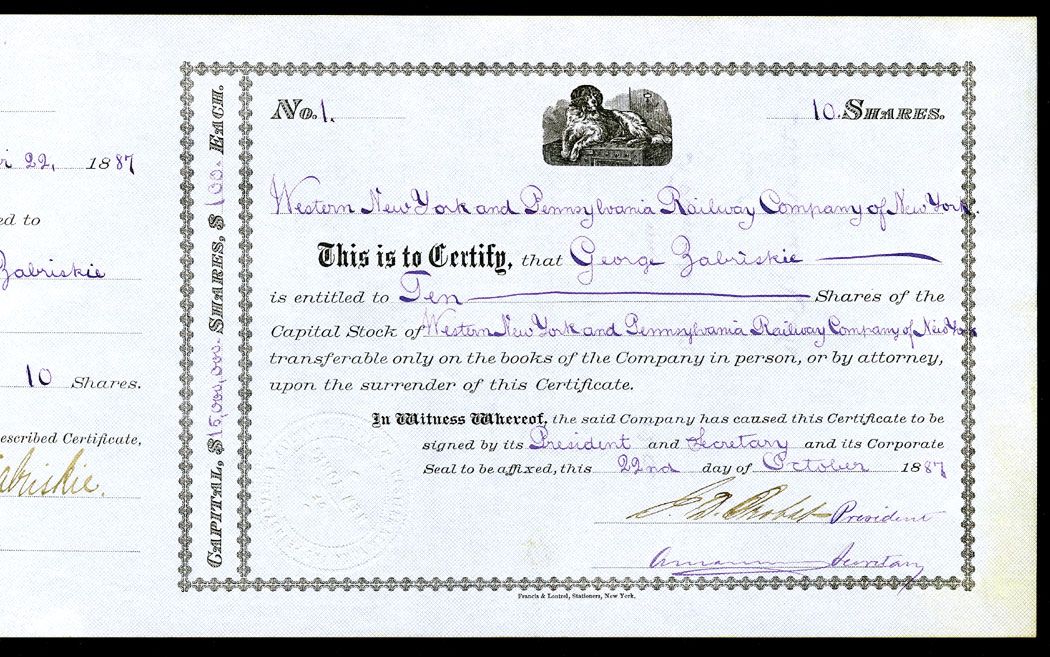 22, 1887
ed to
Zabriskie
10 Shares.
escribed Certificate,
abriskie.
CAPITAL, $15,000,000. SHARES, $100. EACH.
No. 1.
10. SHARES.
Western New York and Pennsylvania Railway Company of New York.
This is to Certify, that George Zabriskie
is entitled to Ten Shares of the
Capital Stock of Western New York and Pennsylvania Railway Company of New York
transferable only on the books of the Company in person, or by attorney,
upon the surrender of this Certificate.
In Witness Whereof, the said Company has caused this Certificate to be
signed by its President and Secretary and its Corporate
Seal to be affixed, this 22nd day of October 1887
President
Secretary
Francis & Loutrel, Stationers, New York.